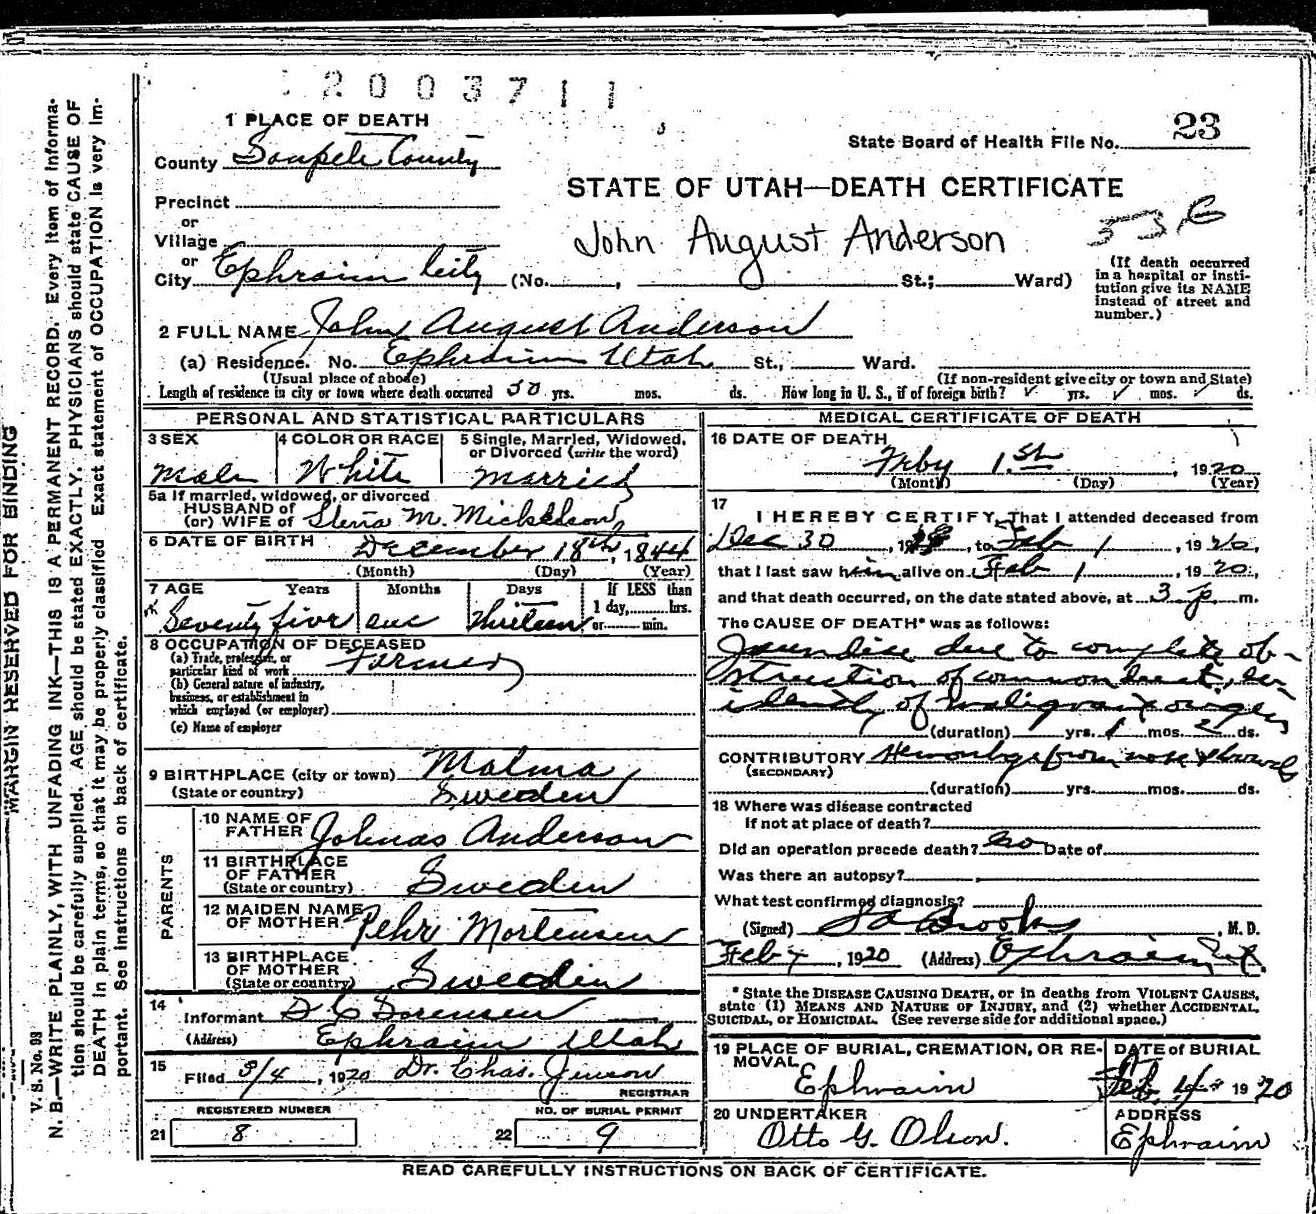 2003711
1 PLACE OF DEATH
County Sanpete County
State Board of Health File No. 23
STATE OF UTAH—DEATH CERTIFICATE
Precinct
or
Village
or
City Ephraim City (No. , St.; Ward)
John August Anderson
(If death occurred in a hospital or institution give its NAME instead of street and number.)
2 FULL NAME John August Anderson
(a) Residence. No. Ephraim Utah St., Ward.
(Usual place of abode) (If non-resident give city or town and State)
Length of residence in city or town where death occurred 50 yrs. mos. ds. How long in U. S., if of foreign birth? yrs. mos. ds.
PERSONAL AND STATISTICAL PARTICULARS
3 SEX 4 COLOR OR RACE 5 Single, Married, Widowed, or Divorced (write the word)
Male White Married
5a If married, widowed, or divorced
HUSBAND of
(or) WIFE of M. Mickelson
6 DATE OF BIRTH December 18th, 1844
(Month) (Day) (Year)
7 AGE Years Months Days If LESS than 1 day, hrs. or min.
Seventy five one thirteen
8 OCCUPATION OF DECEASED
(a) Trade, profession, or particular kind of work Farmer
(b) General nature of industry, business, or establishment in which employed (or employer)
(c) Name of employer
9 BIRTHPLACE (city or town) Malmo
(State or country) Sweden
PARENTS
10 NAME OF FATHER Johnas Anderson
11 BIRTHPLACE OF FATHER (State or country) Sweden
12 MAIDEN NAME OF MOTHER Pehr Mortensen
13 BIRTHPLACE OF MOTHER (State or country) Sweden
14 Informant D C Sorensen
(Address) Ephraim Utah
15 Filed 3/4, 1920 Dr. Chas. Jenson
REGISTRAR
REGISTERED NUMBER NO. OF BURIAL PERMIT
21 8 22 9
MEDICAL CERTIFICATE OF DEATH
16 DATE OF DEATH
Feby 1st, 1920
(Month) (Day) (Year)
17 I HEREBY CERTIFY, That I attended deceased from
Dec 30, 19, to Feb 1, 1920,
that I last saw him alive on Feb 1, 1920,
and that death occurred, on the date stated above, at 3 p m.
The CAUSE OF DEATH* was as follows:
Jaundice due to complete ob-
struction of common duct, ev-
idently of malignant origin
(duration) yrs. 1 mos. 2 ds.
CONTRIBUTORY Hemorrhage from nose & bowels
(SECONDARY)
(duration) yrs. mos. ds.
18 Where was disease contracted
If not at place of death?
Did an operation precede death? no Date of
Was there an autopsy?
What test confirmed diagnosis?
(Signed) Brooks, M. D.
Feb 4, 1920 (Address) Ephraim, Ut.
* State the DISEASE CAUSING DEATH, or in deaths from VIOLENT CAUSES, state (1) MEANS AND NATURE OF INJURY, and (2) whether ACCIDENTAL, SUICIDAL, or HOMICIDAL. (See reverse side for additional space.)
19 PLACE OF BURIAL, CREMATION, OR REMOVAL DATE of BURIAL
Ephraim Feb 4 1920
20 UNDERTAKER ADDRESS
Otto G. Olson. Ephraim
READ CAREFULLY INSTRUCTIONS ON BACK OF CERTIFICATE.
MARGIN RESERVED FOR BINDING
V. S. No. 93
N. B.—WRITE PLAINLY, WITH UNFADING INK—THIS IS A PERMANENT RECORD. Every item of information should be carefully supplied. AGE should be stated EXACTLY. PHYSICIANS should state CAUSE OF DEATH in plain terms, so that it may be properly classified. Exact statement of OCCUPATION is very important. See instructions on back of certificate.